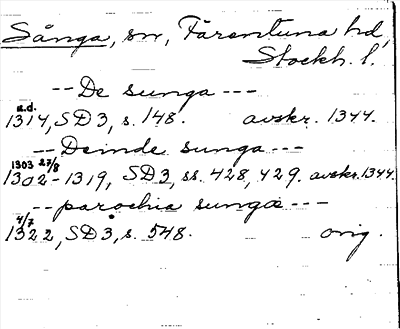 Sånga, sn, Färentuna hd,
Stockh. l.
-- De sunga ---
u.d.
1314, SD3, s. 148. avskr. 1344.
-- Deinde sunga ---
1303 27/8
1302-1319, SD3, ss. 428, 429. avskr. 1344.
-- parochia sunga ---
4/7
1322, SD3, s. 548. orig.